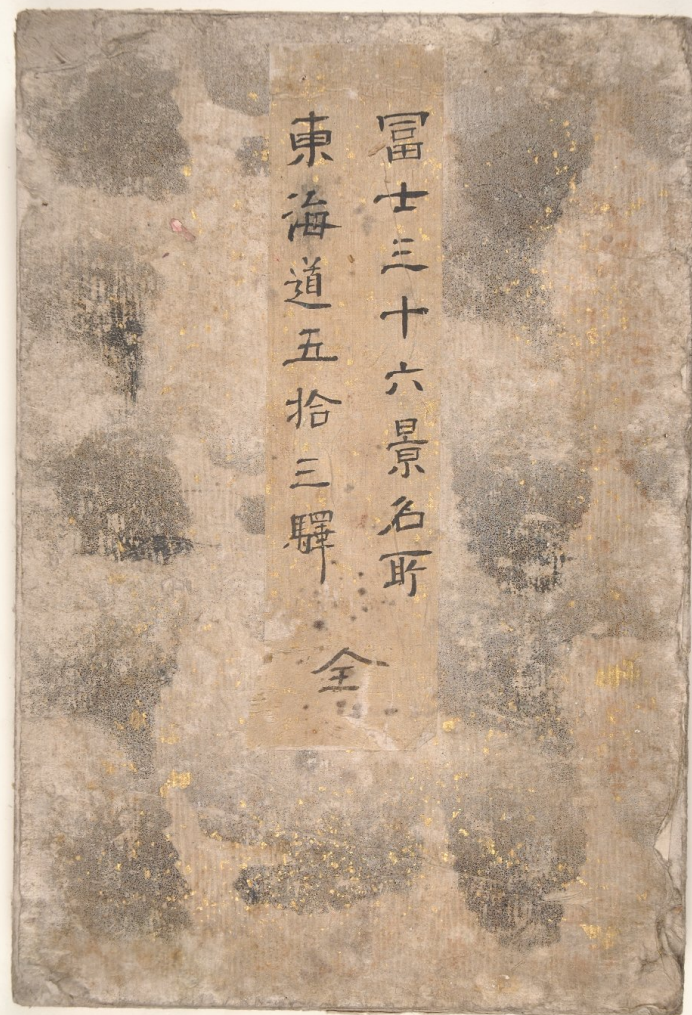 冨士三十六景名所
東海道五拾三驛
全